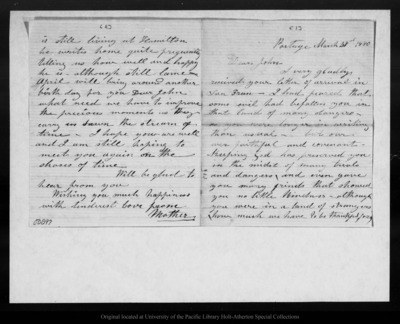 (4)
is still living at Hamilton
he writes home quite frequently
telling us how well and happy
he is - although still lame -
April will bring around another
birth day for you Dear John
what need we have to improve
the precious moments as they
carry us down the stream of
time - I hope you are well
and I am still hoping to
meet you again on the
shores of time
Will be glad to
hear from you
Wishing you much happiness
with tenderest love from
Mother
(1)
Portage March 31st 1880
Dear John
I very gladly
received your letter of arrival in
San Fran - I had feared that
some evil had befallen you in
that land of many dangers -
as you were longer in writing
than usual - but our
ever faithful and covenant-
keeping God has preserved you
in the midst of many trials
and dangers and even gave
you many friends that showed
you no little kindness - although
you were in a land of strangers
how much we have to be thankful for
Original located at University of the Pacific Library Holt-Atherton Special Collections